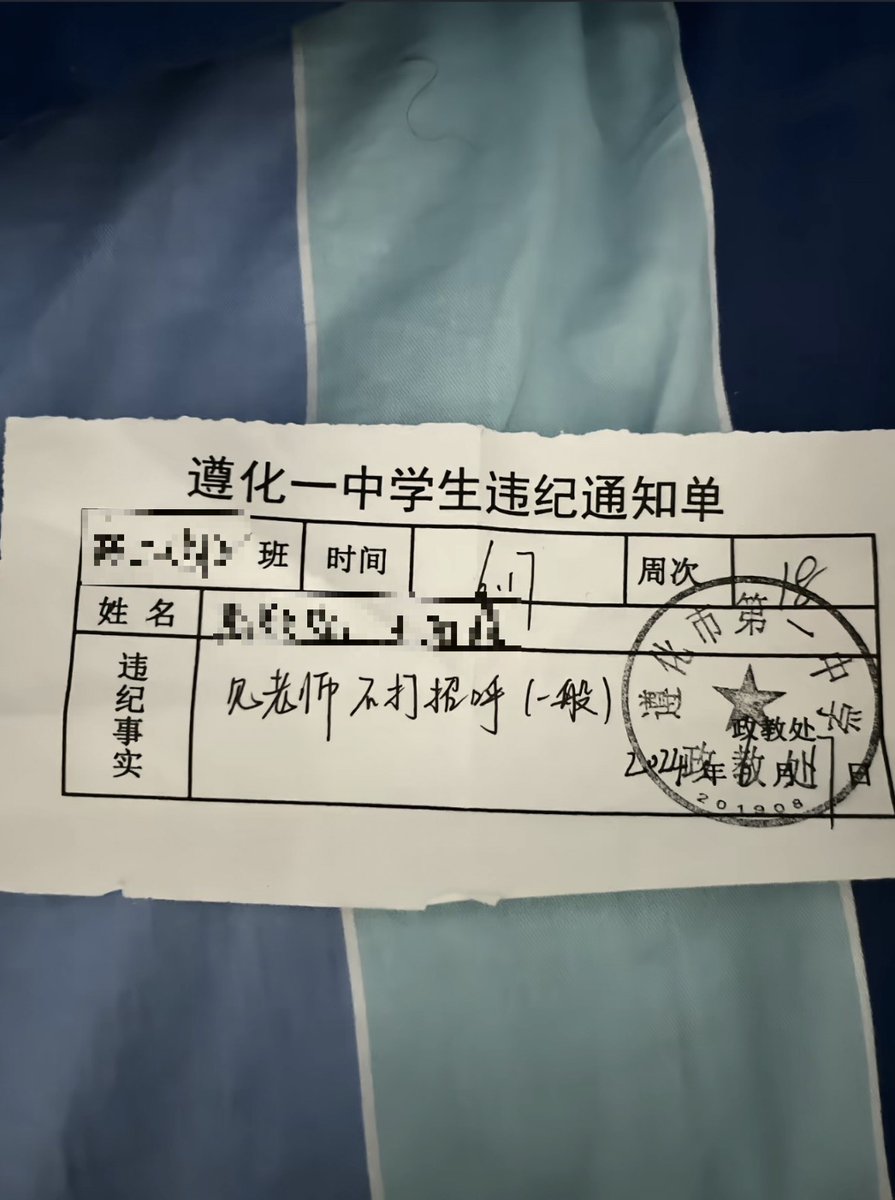 遵化一中学生违纪通知单
班 时间 6.17 周次 18
姓 名
违纪事实 见老师不打招呼(一般)
政教处
2024年6月17日
遵化市第一中学
政教处
201908